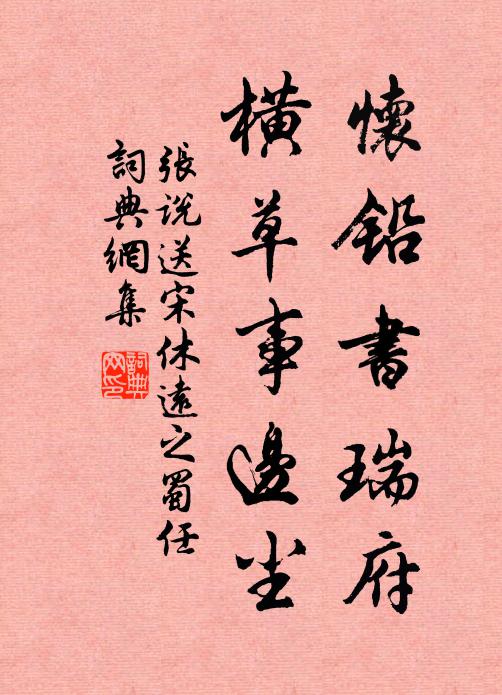 懷鉛書瑞府
橫草事邊尘
張說送宋休遠之蜀任
詞典網集
詞典
网印